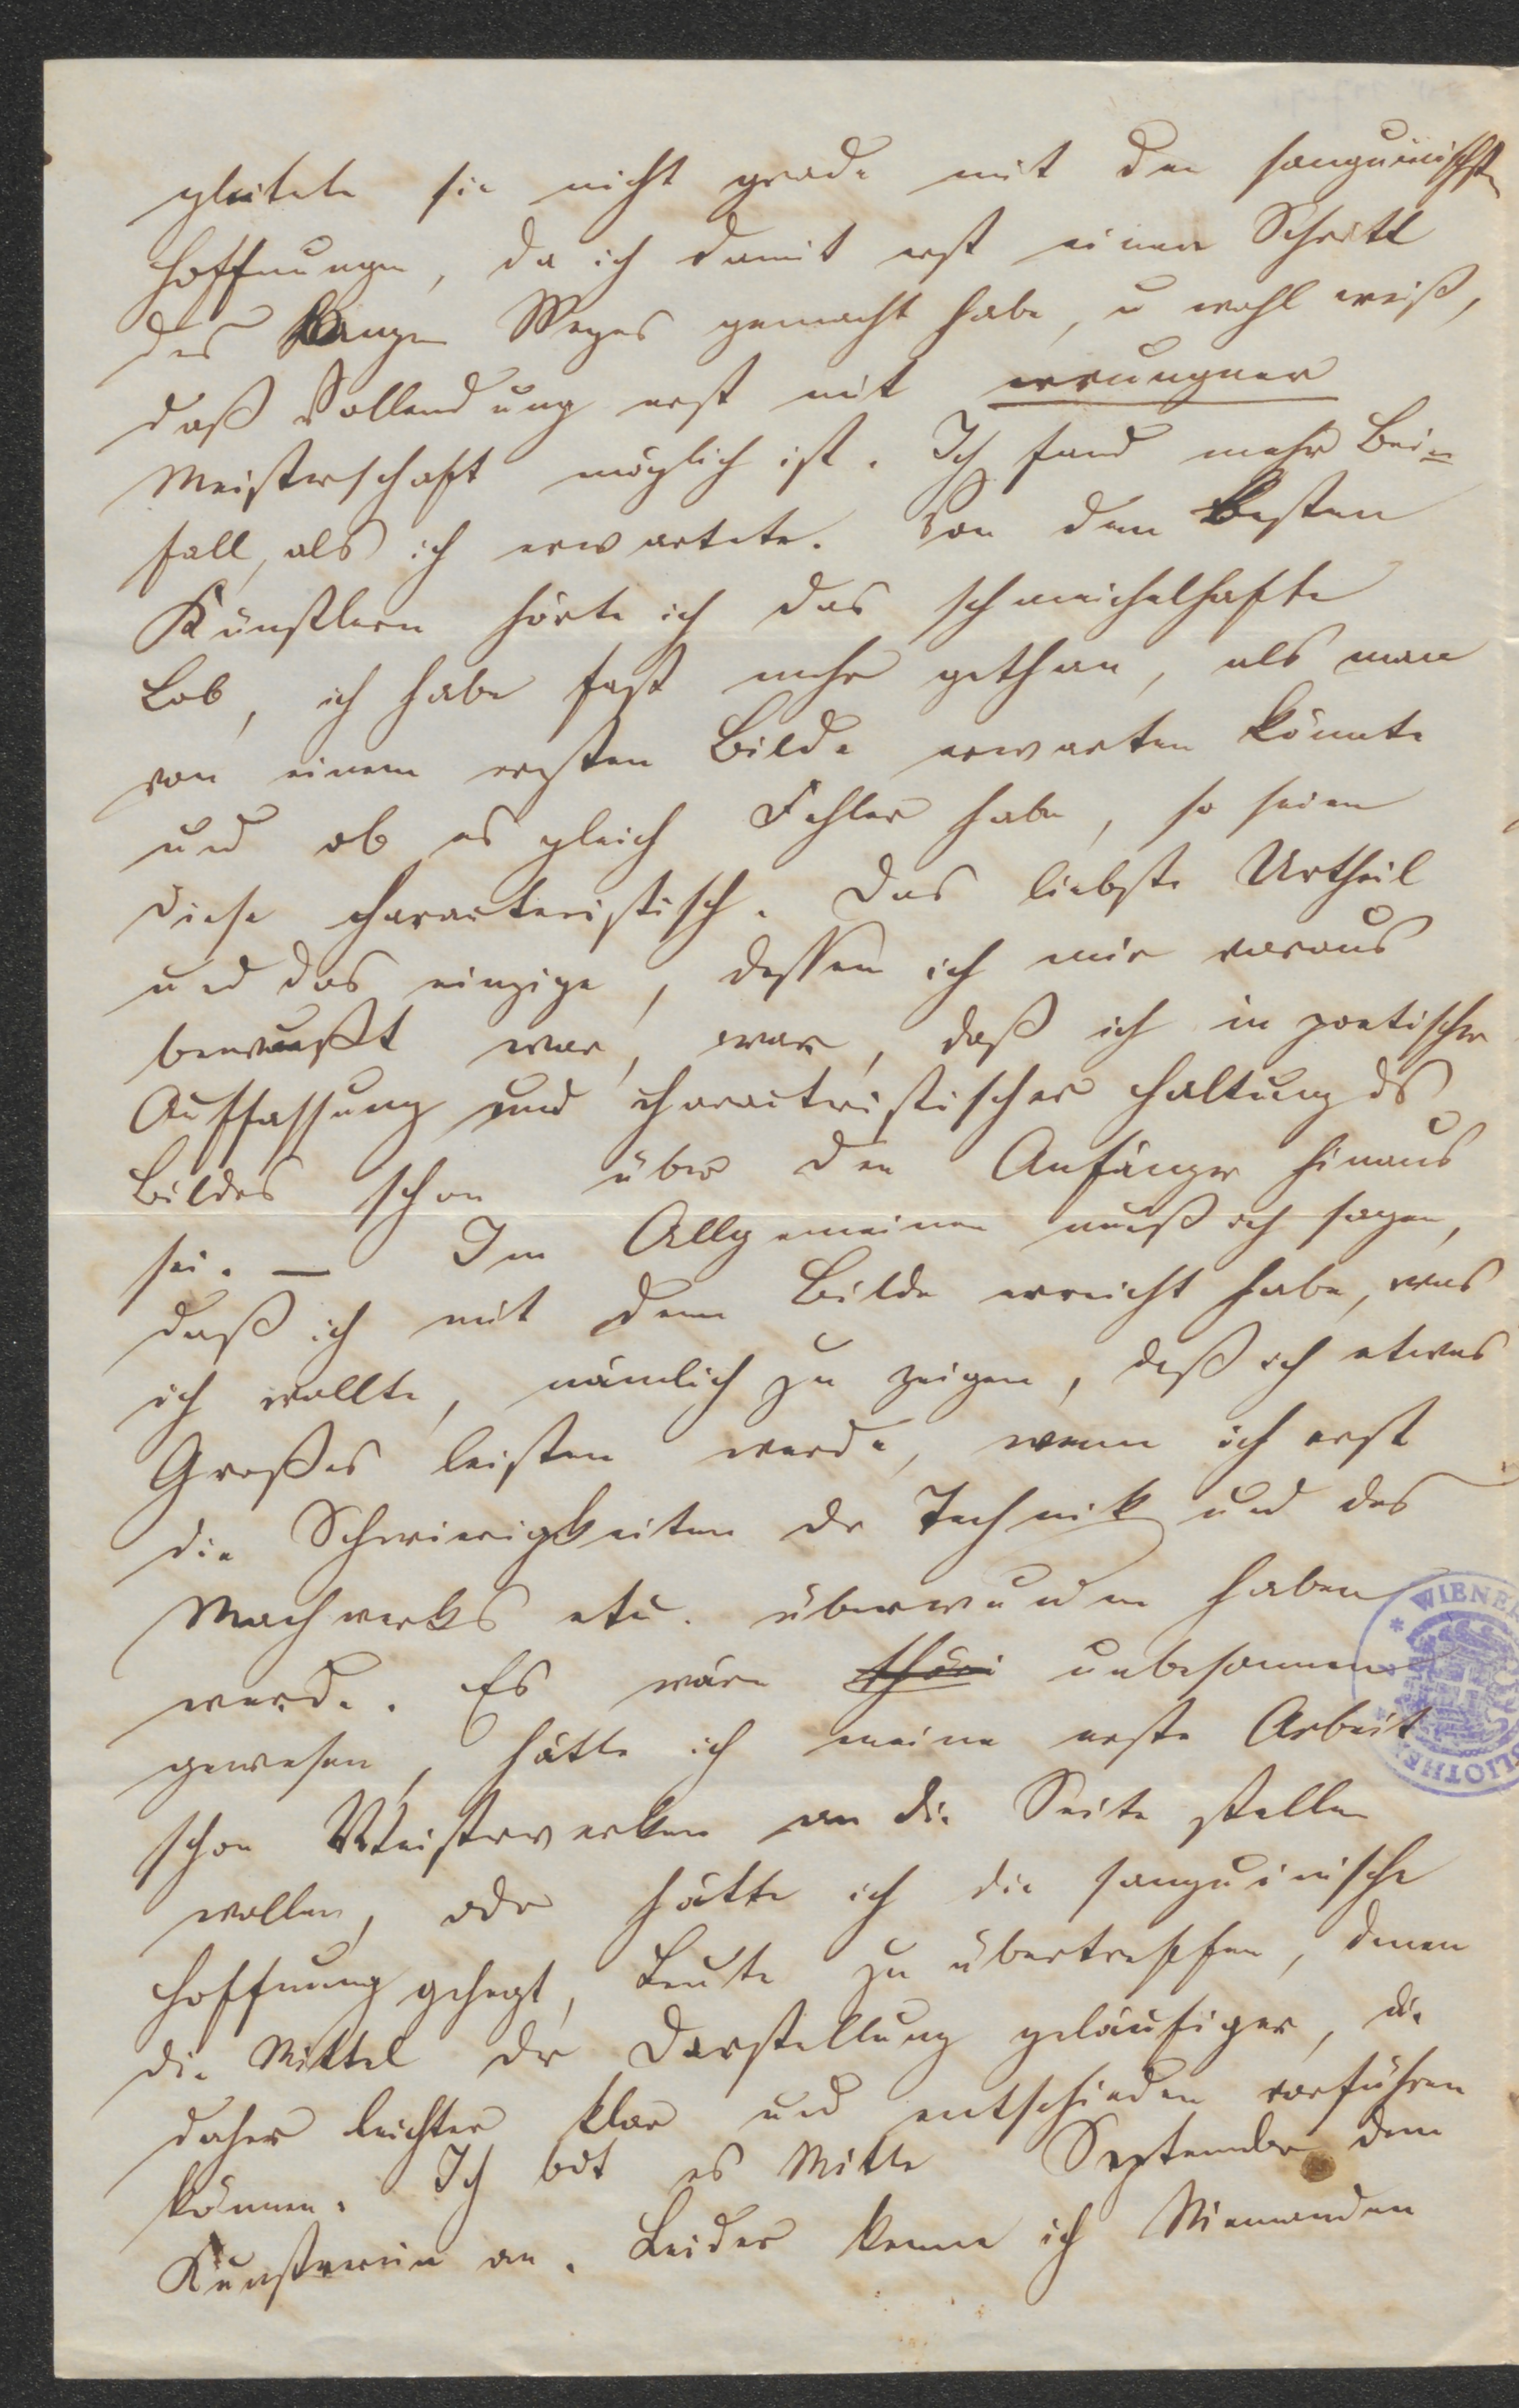 gleitete sie nicht grade mit den sanguinischsten
Hoffnungen, da ich damit erst einen Schritt
des langen Weges gemacht habe, u wohl weiß,
daß Vollendung erst mit errungner
Meisterschaft möglich ist. Ich fand mehr Bei-
fall, als ich erwartete. Von den besten
Künstlern hörte ich das schmeichelhafte
Lob, ich habe fast mehr gethan, als man
von einem ersten Bilde erwarten könnte
und ob es gleich Fehler habe, so seien
diese characteristisch. Das liebste Urtheil
und das einzige, dessen ich mir voraus
bewußt war, war, daß ich in poetischer
Auffassung und characteristischer Haltung ds
Bildes schon über den Anfänger hinaus
sei. — Im Allgemeinen muß ich sagen,
daß ich mit dem Bilde erreicht habe, was
ich wollte, nämlich zu zeigen, daß ich etwas
Großes leisten werde, wenn ich erst
die Schwierigkeiten der Technik und des
Machwerks etc. überwunden haben
werde. Es wäre unbesonnen
gewesen, hätte ich meine erste Arbeit
schon Meisterwerken an die Seite stellen
wollen, oder hätte ich die sanguinische
Hoffnung gehegt, Leute zu übertreffen, denen
die Mittel der Darstellung geläufiger, die
daher leichter klar und entschieden vorführen
können. Ich bot es Mitte September dem
Kunstverein an. Leider kenne ich Niemanden
WIENER
BIBLIOTHEK